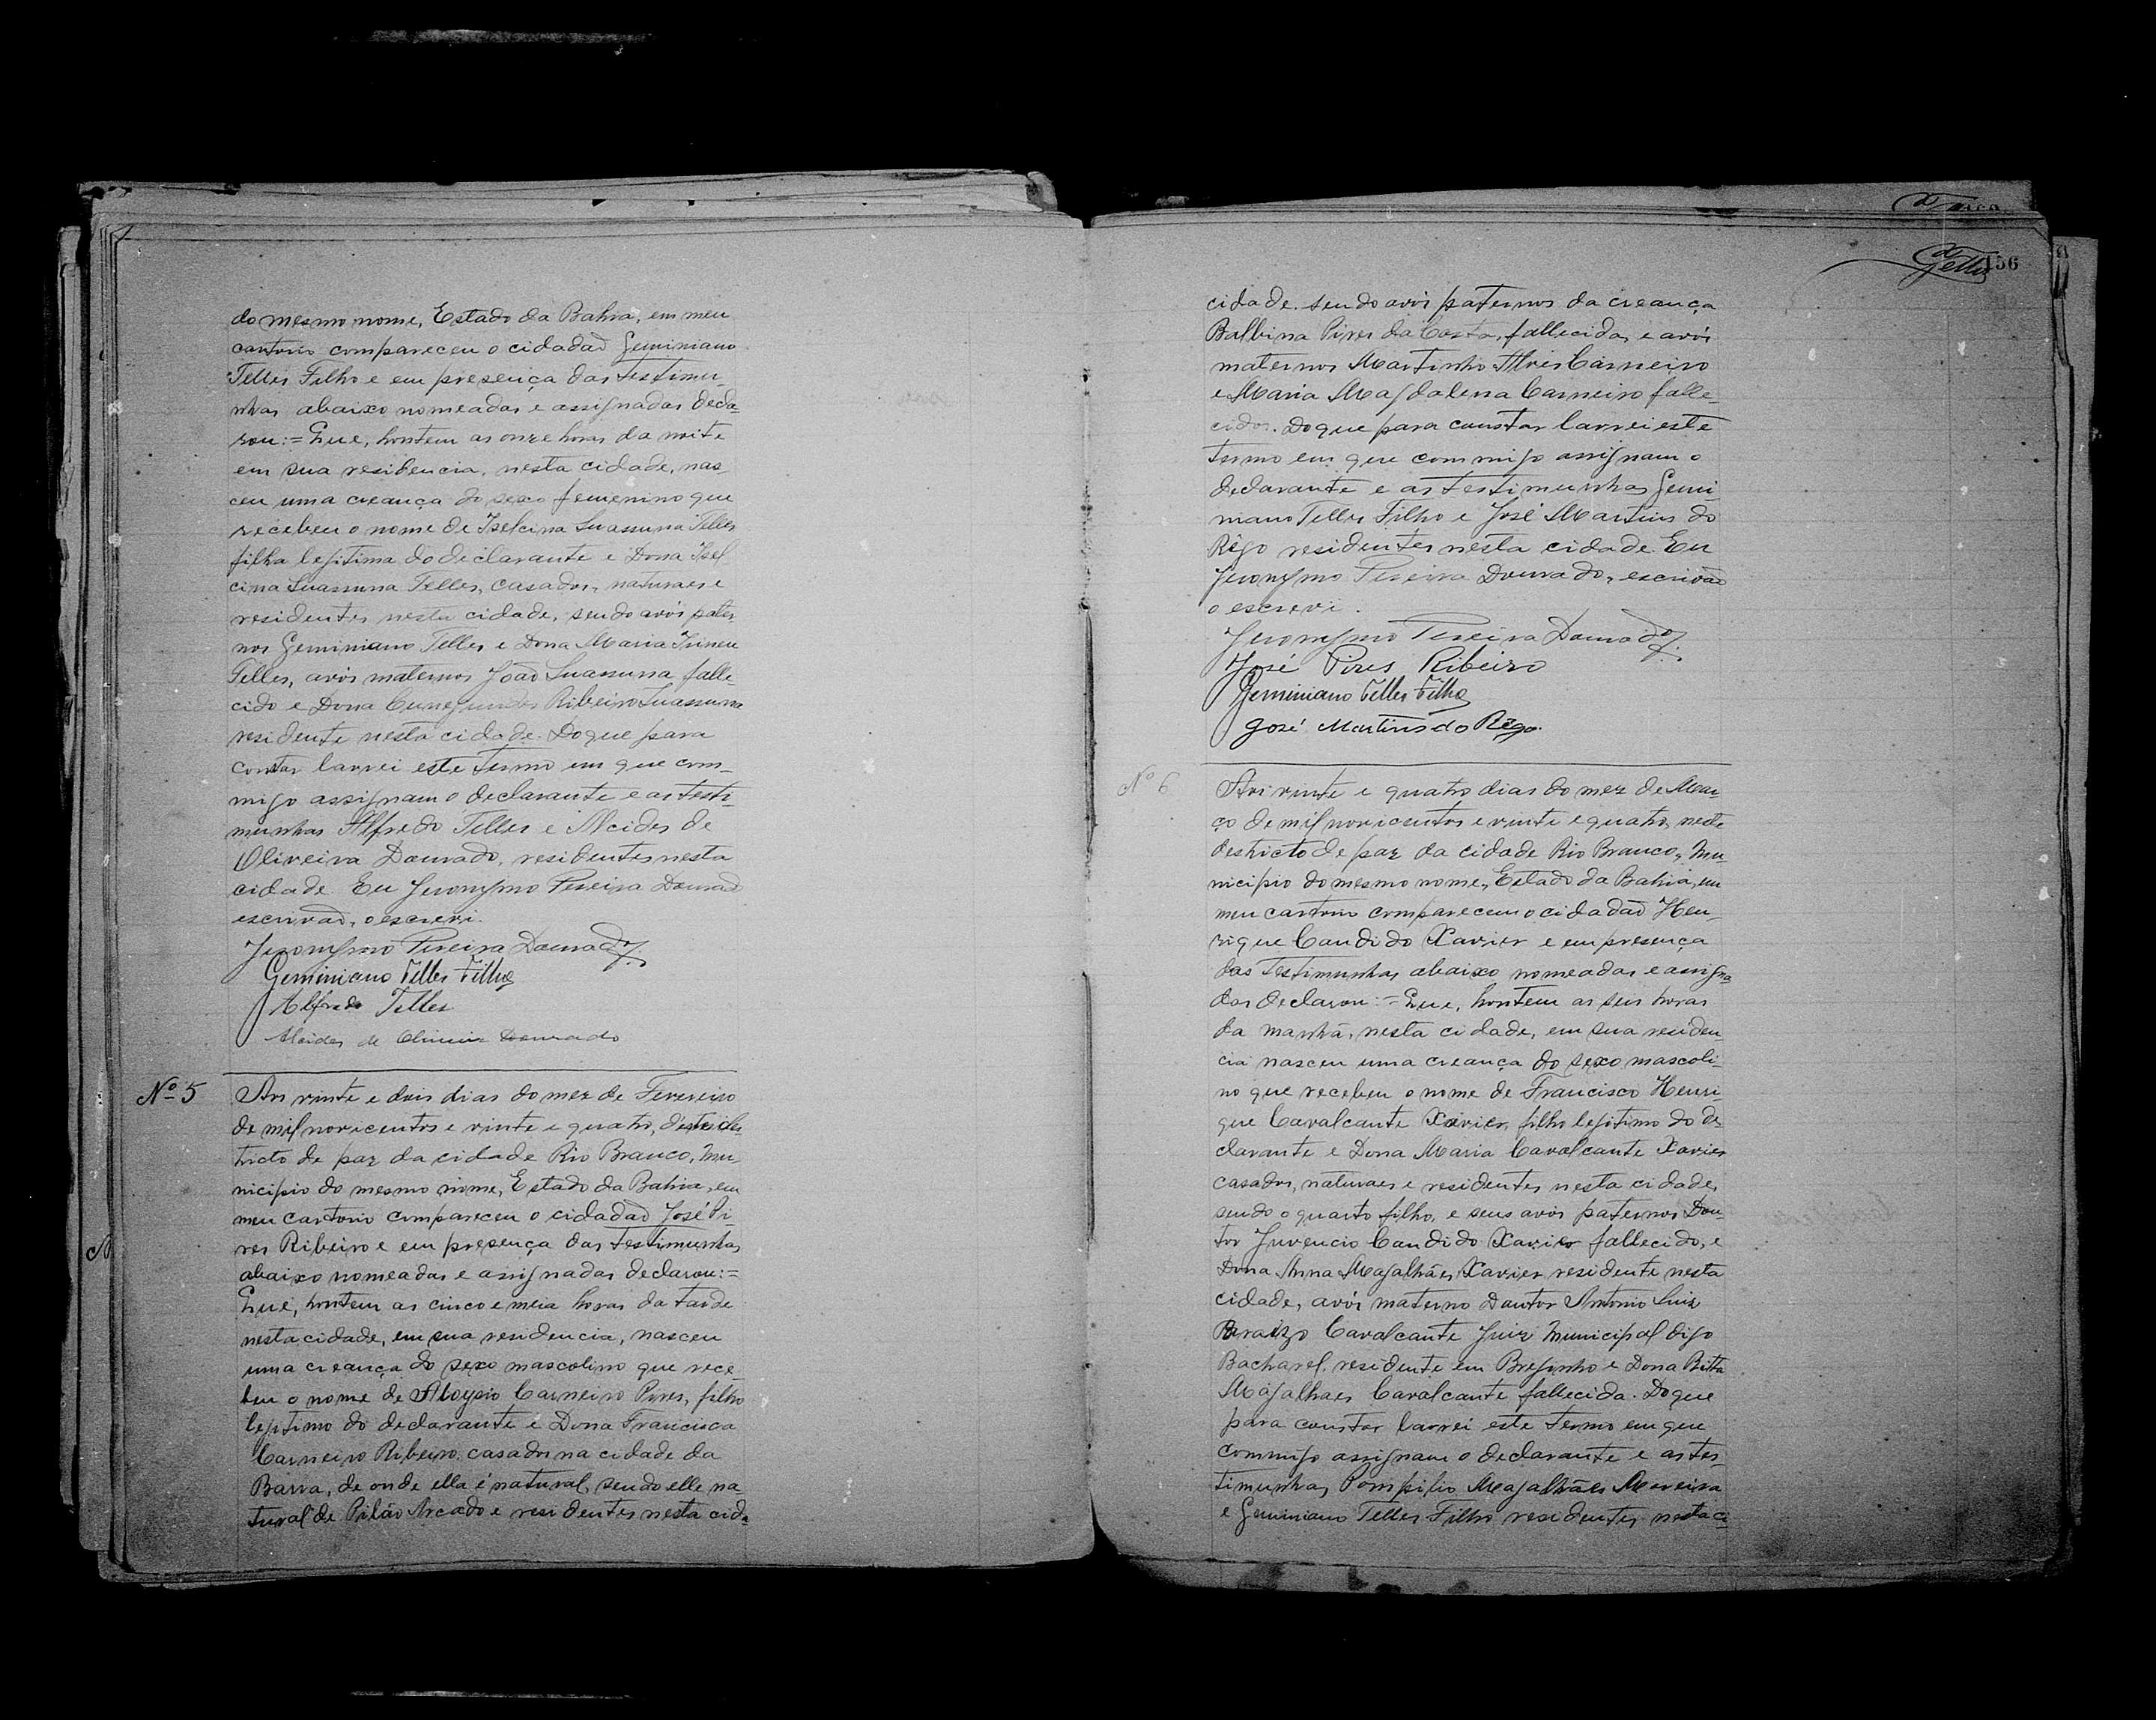 do mesmo nome, Estado da Bahia, em meu
cartorio compareceu o cidadaõ Geminiano
Telles Filho e em presença das testimu-
nhas abaixo nomeadas e assignadas decla-
rou:= Que, hontem as onze horas da noite
em sua residencia, nesta cidade, nas-
ceu uma creança do sexo femenino que
recebeu o nome de Iselcina Suassuna Telles
filha legitima do declarante e Dona Isel
cina Suassuna Telles, casados, naturaes e
residentes nesta cidade, sendo avós pater
nos Geminiano Telles e Dona Maria Irineu
Telles, avós maternos Joaõ Suassuna falle-
cido e Dona Cunegundes Ribeiro Suassuna
residente nesta cidade. Do que para
constar lavrei este termo em que com-
migo assignam o declarante e as testi-
munhas Alfredo Telles e Alcides de
Oliveira Dourado, residentes nesta
cidade. Eu Jeronymo Pereira Dourado
escrivaõ, o escrevi.
Jeronymo Pereira Dourado
Geminiano Telles Filho
Alfredo Telles
Alcides de Oliveira Dourado
Nº 5
Aos vinte e dois dias do mez de Fevereiro
de mil novicentos e vinte e quatro,
tricto de paz da cidade Rio Branco, Mu-
nicipio do mesmo nome, Estado da Bahia, em
meu cartorio compareceu o cidadaõ José Pi-
res Ribeiro e em presença das testimunhas
abaixo nomeadas e assignadas declarou:=
Que, hontem as cinco e meia horas da tarde
nesta cidade, em sua residencia, nasceu
uma creança do sexo mascolino que rece-
beu o nome de Aloysio Carneiro Pires, filho
legitimo do declarante e Dona Francisca
Carneiro Ribeiro, casados na cidade da
Barra, de onde ella é natural, sendo elle na-
tural de Pilão Arcado e residentes nesta cida-
Telles 156
cidade. sendo avós paternos da creança
Balbina Pires da Costa, fallecida, e avós
maternos Martinho Alves Carneiro
e Maria Magdalena Carneiro falle-
cidos. Do que para constar lavrei este
termo em que commigo assignam o
declarante e as testimunhas Gemi-
niano Telles Filho e José Martins do
Rêgo residentes nesta cidade. Eu
Jeronymo Pereira Dourado, escrivaõ
o escrevi.
Jeronymo Pereira Dourado
José Pires Ribeiro
Geminiano Telles Filho
José Martins do Rego.
Nº 6
Aos vinte e quatro dias do mez de Mar-
ço de mil novicentos e vinte e quatro, neste
destricto de paz da cidade Rio Branco, Mu-
nicipio do mesmo nome, Estado da Bahia, em
meu cartorio compareceu o cidadaõ Hen-
rique Candido Xavier e em presença
das testimunhas abaixo nomeadas e assigna-
das declarou:= Que, hontem as seis horas
da manhã, nesta cidade, em sua residen-
cia nasceu uma creança do sexo mascoli-
no que recebeu o nome de Francisco Henri-
que Cavalcante Xavier, filho legitimo do de-
clarante e Dona Maria Cavalcante Xavier
casados, naturaes e residentes nesta cidade,
sendo o quarto filho, e seus avós paternos Dou-
tor Juvencio Candido Xavier fallecido, e
Dona Anna Magalhães Xavier residente nesta
cidade, avós materno Doutor Antonio Luiz
Cavalcante Juiz Municipal digo
Bacharel residente em Brejinho e Dona Rita
Magalhaes Cavalcante fallecida. Do que
para constar lavrei este termo em que
commigo assignam o declarante e as tes-
timunhas Pompilio Magalhães Moreira
e Geminiano Telles Filho residentes nesta ci-